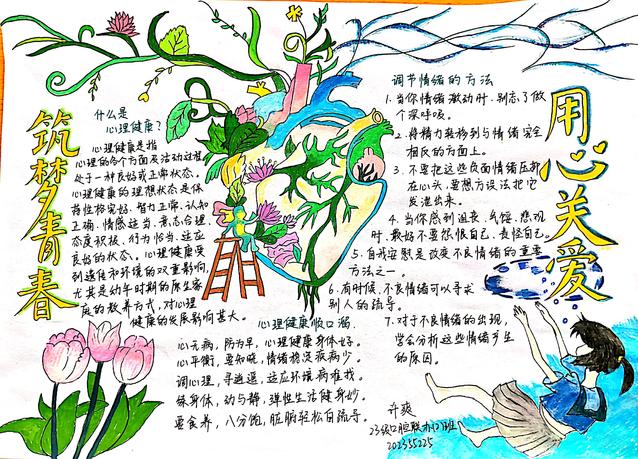 筑梦青春
用心关爱
什么是
心理健康?
心理健康是指
心理的各个方面及活动过程
处于一种良好或正常状态。
心理健康的理想状态是保
持性格完好、智力正常、认知
正确、情感适当、意志合理、
态度积极、行为恰当、适应
良好的状态。心理健康受
到遗传和环境的双重影响,
尤其是幼年时期的原生家
庭的教养方式,对心理
健康的发展影响甚大。
调节情绪的方法
1.当你情绪激动时,别忘了做
个深呼吸。
2.将精力转移到与情绪完全
相反的方面上。
3.不要把这些负面情绪压抑
在心头,要想方设法把它
发泄出来。
4.当你感到沮丧、气馁、悲观
时,最好不要怨恨自己、责怪自己。
5.自我安慰是改变不良情绪的重要
方法之一。
6.有时候,不良情绪可以寻求
别人的疏导。
7.对于不良情绪的出现,
学会分析这些情绪产生
的原因。
心理健康顺口溜
心无病,防为早,心理健康身体好。
心平衡,要知晓,情绪稳定疾病少。
调心理,寻逍遥,适应环境病难找。
练身体,动与静,弹性生活健身妙。
要食养,八分饱,脏腑轻松自疏导。
许爽
23级口腔联办12班
202355225